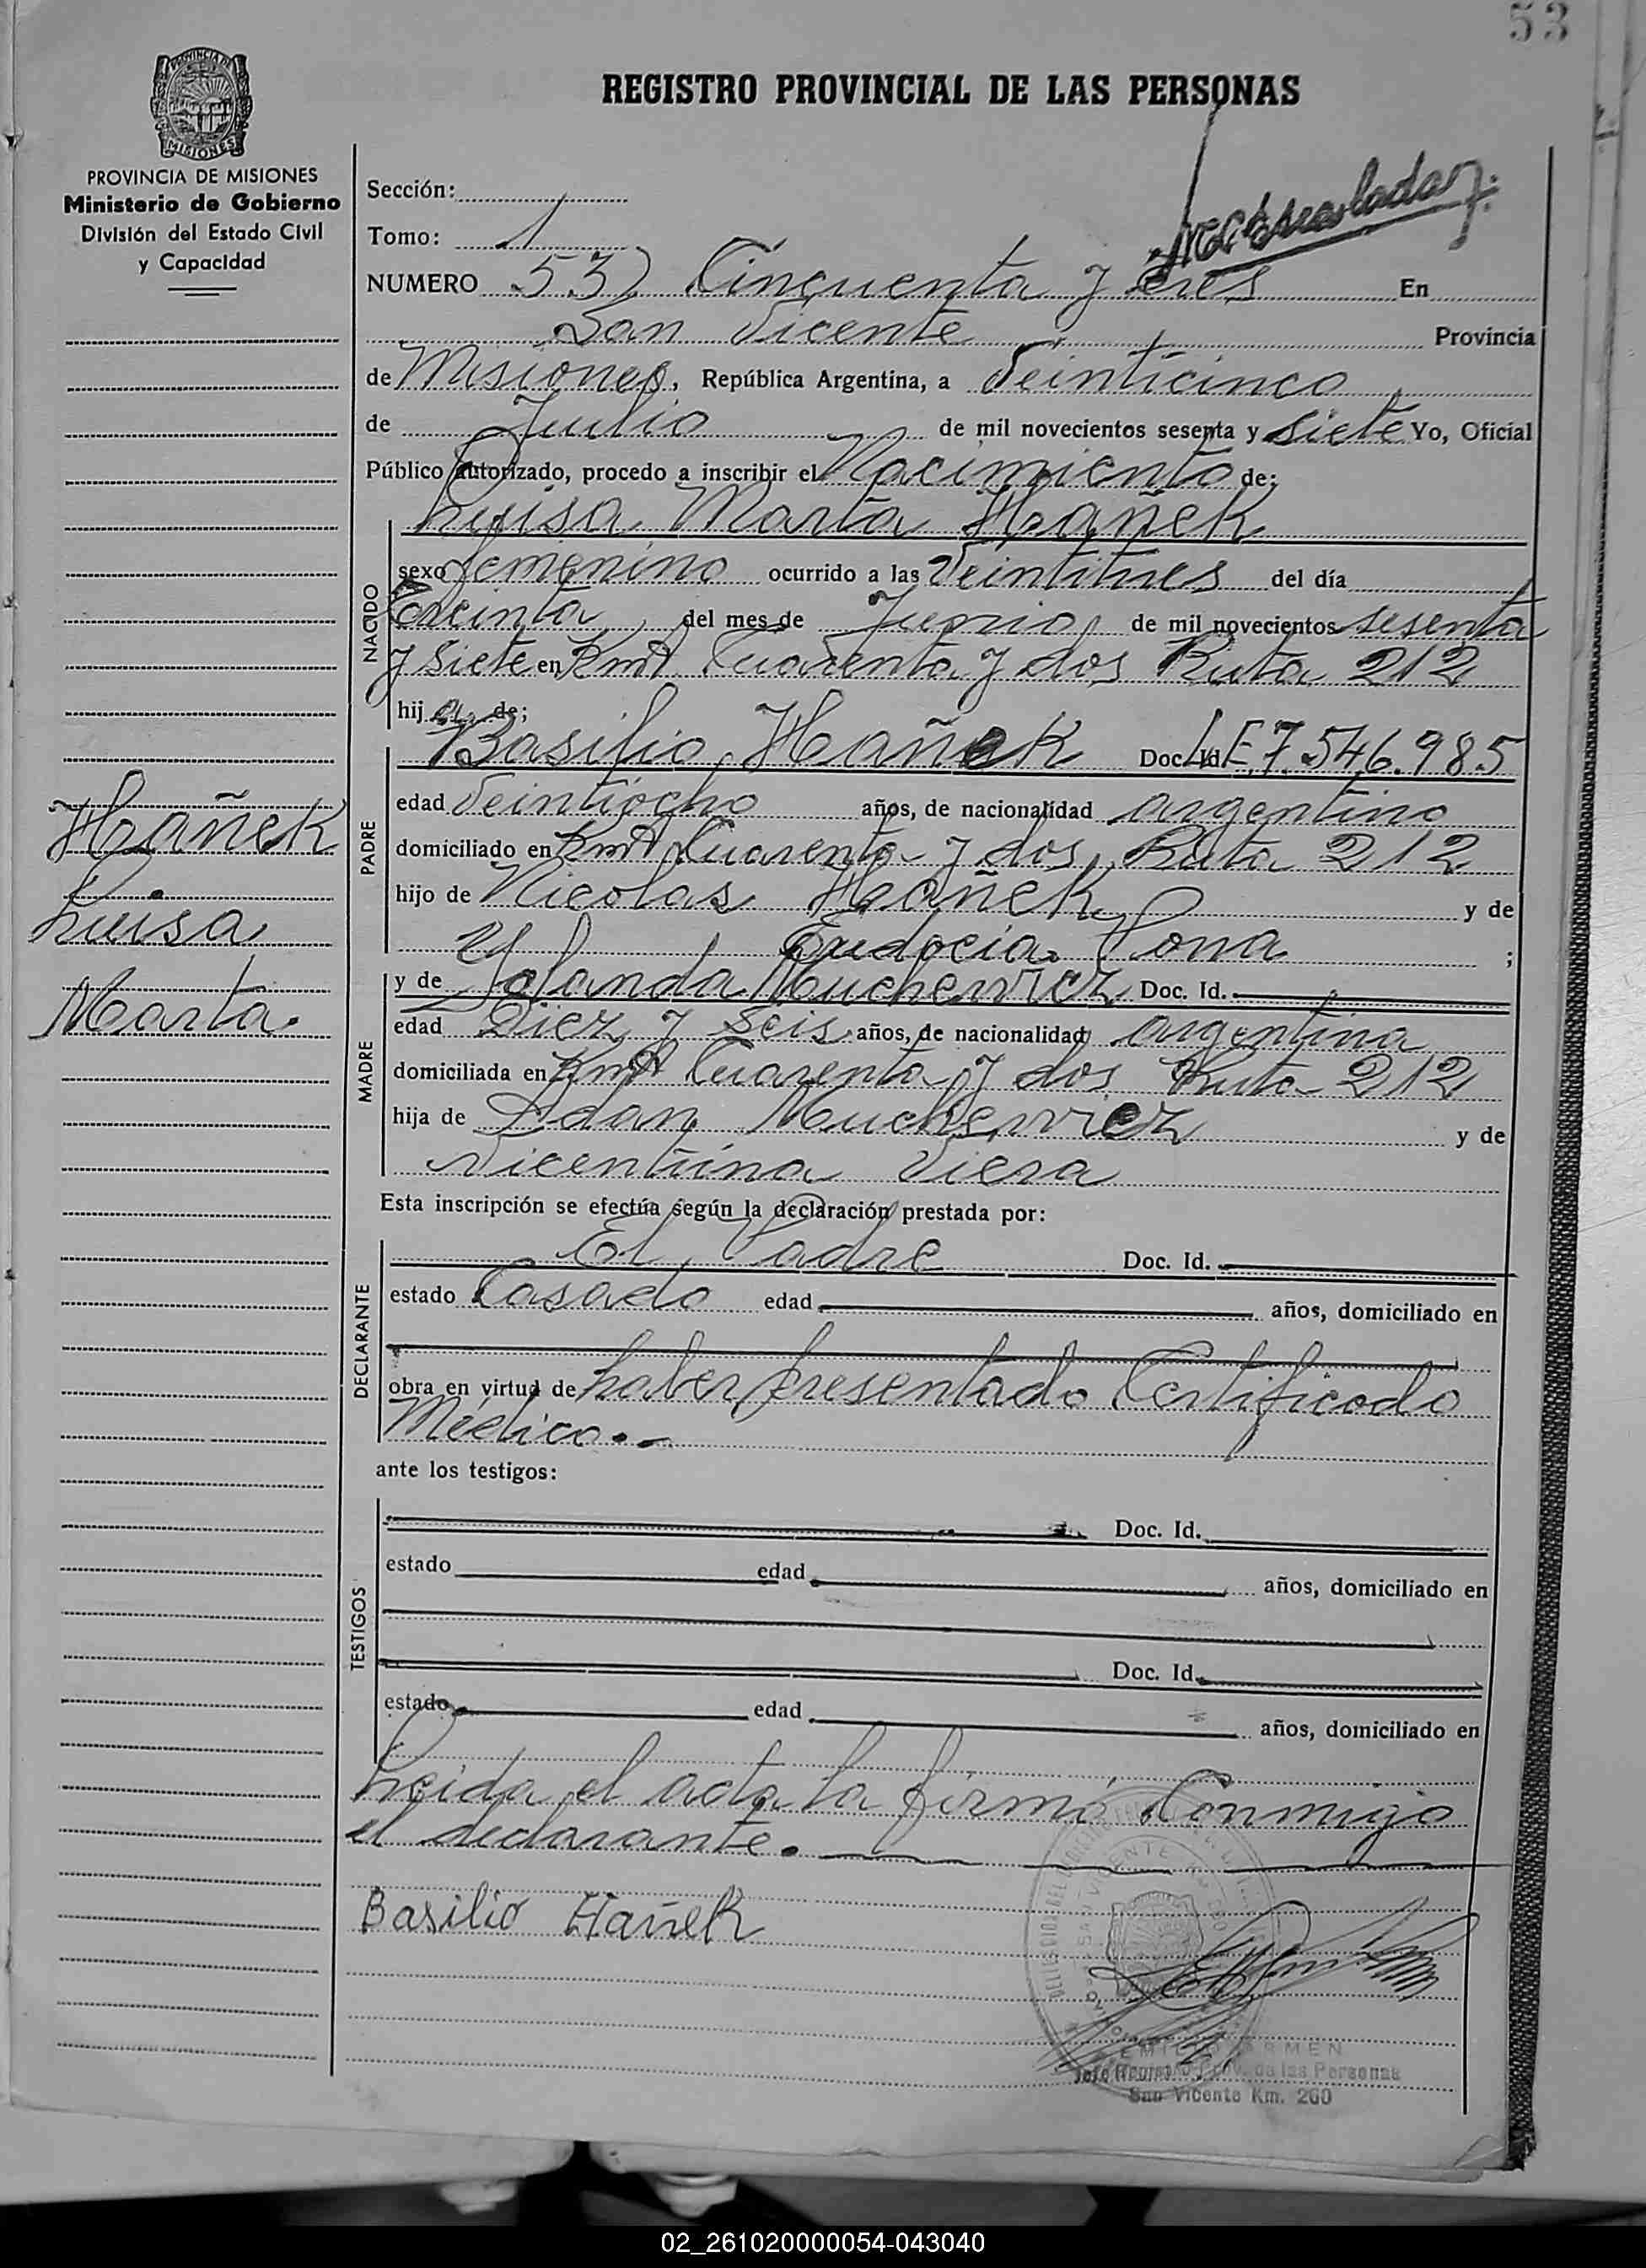 53
REGISTRO PROVINCIAL DE LAS PERSONAS
PROVINCIA DE MISIONES
MISIONES
PROVINCIA DE MISIONES
Ministerio de Gobierno
División del Estado Civil
y Capacidad
Sección:
Tomo: 1
NUMERO 53) Cincuenta y tres En
San Vicente Provincia
de Misiones, República Argentina, a Veinticinco
de Julio de mil novecientos sesenta y siete Yo, Oficial
Público autorizado, procedo a inscribir el Nacimiento de:
Luisa Marta Hañek
NACIDO
sexo femenino ocurrido a las Veintitres del día
treinta del mes de Junio de mil novecientos sesenta
y siete en Kmt Cuarenta y dos Ruta 212
hija de;
PADRE
Basilio Hañek Doc. Id. L.E. 7.546.985
edad Veintiocho años, de nacionalidad argentino
domiciliado en Kmt Cuarenta y dos Ruta 212
hijo de Nicolas Hañek y de
Eudocia ;
Hañek
Luisa
Marta.
MADRE
y de Yolanda Doc. Id.
edad Diez y Seis años, de nacionalidad argentina
domiciliada en Kmt Cuarenta y dos Ruta 212
hija de Adan y de
Vicentina Viera
Esta inscripción se efectúa según la declaración prestada por:
DECLARANTE
El Padre Doc. Id.
estado Casado edad años, domiciliado en
obra en virtud de haber presentado Certificado
Médico.-
ante los testigos:
TESTIGOS
Doc. Id.
estado edad años, domiciliado en
Doc. Id.
estado edad años, domiciliado en
Leida el acta la firmó Conmigo
el declarante.
Basilio Hañek
Jefe Registro Prov. de las Personas
San Vicente Km. 260
02_261020000054-043040